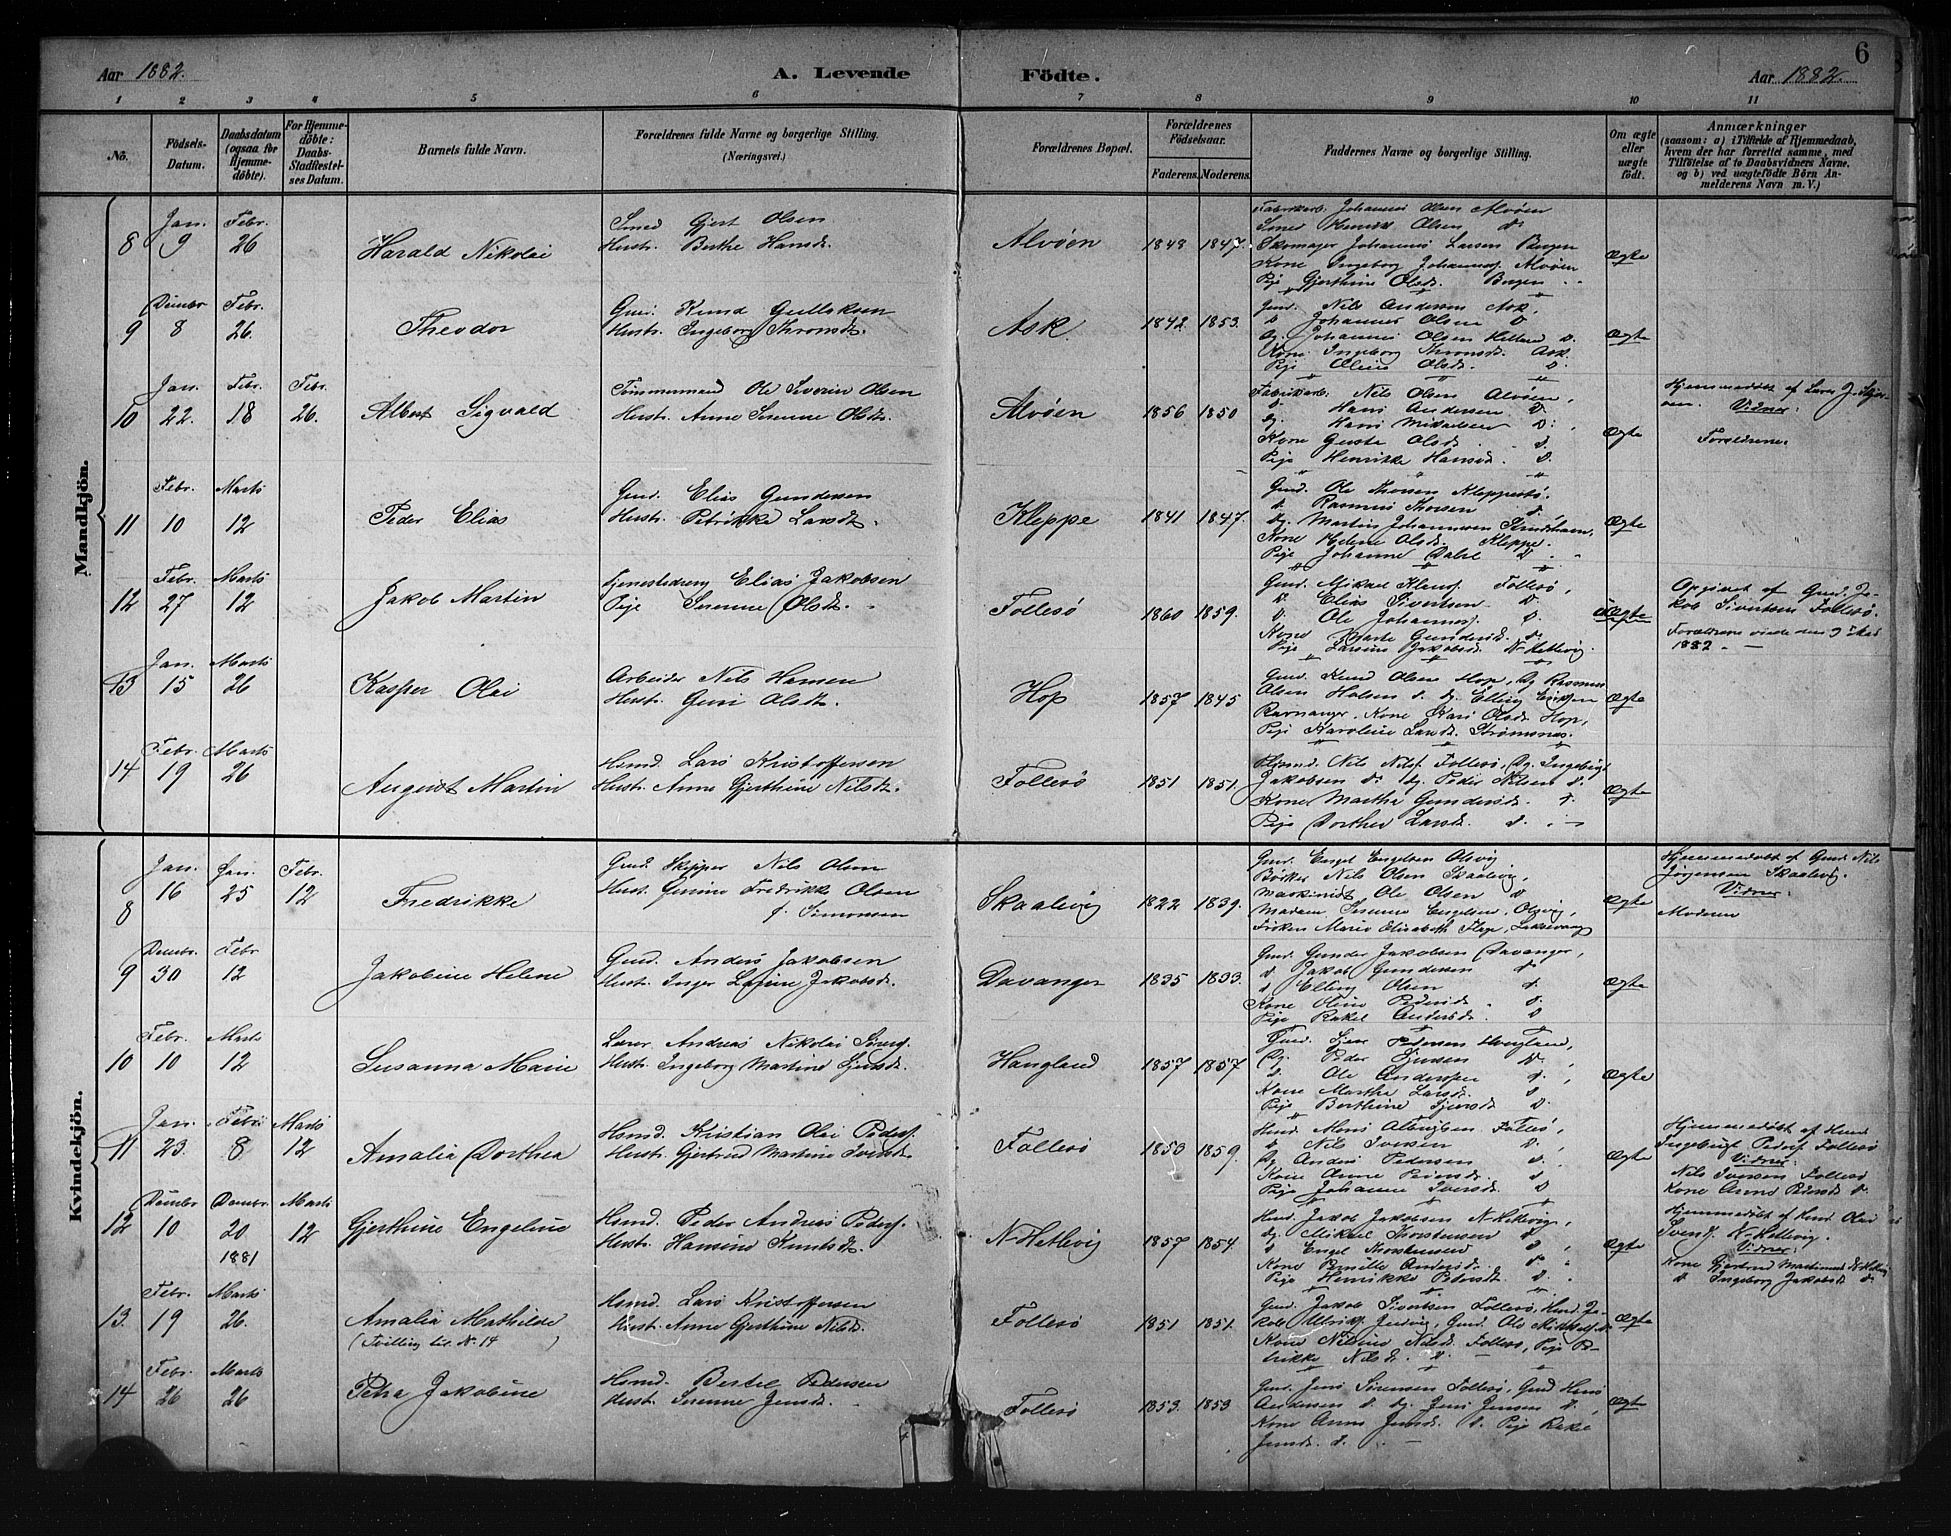 Aar 1882. A. Levende Födte. Aar 1882. 6
1 2 3 4 5 6 7 8 9 10 11
No.
Födsels-Datum.
Daabsdatum (ogsaa for Hjemme-döbte).
For Hjemme-döbte: Daabs-Stadfæstel-ses Datum.
Barnets fulde Navn.
Forældrenes fulde Navne og borgerlige Stilling.
(Næringsvei.)
Forældrenes Bopæl.
Forældrenes Födselsaar.
Faderens. Moderens.
Faddernes Navne og borgerlige Stilling.
Om ægte eller uægte födt.
Anmærkninger
(saasom: a) i Tilfælde af Hjemmedaab,
hvem der har forrettet samme, med
Tilföielse af to Daabsvidners Navne,
og b) ved uægtefödte Börn An-
melderens Navn m. V.)
Mandkjön.
8 Jan. 9 Febr. 26 Harald Nikolai
Smed Gjert Olsen
Hustr. Berthe Hansd.
Alvöen 1848 1847.
Fabrikarb. Johannes Olsen Alvöen
Smed Henrik Olsen d.
Skomager Johannes Larsen Bergen
Kone Ingeborg Johannesd. Alvöen
Pige Gjerthine Olsd. Bergen
Ægte
9 Decmbr 8 Febr. 26. Theodor
Gmd. Knud Gulleksen
Hustr. Ingeborg Thomsd.
Ask. 1842 1853.
Gmd. Nils Andersen Ask,
d Johannes Olsen d
Ug. Johannes Olsen Hetland d.
Kone Ingeborg Thomsd. Ask.
Pige Oline Olsd. d.
Ægte
10 Jan. 22. Febr. 18 Febr. 26. Albert Sigvald
Tömmermand Ole Severin Olsen
Hustr. Anne Serene Olsdt.
Alvöen 1856 1850
Fabrikarb. Nils Olsen Alvöen,
d. Hans Andersen d.
Ug. Hans Mikkelsen d.
Kone Gurta Olsd. d.
Pige Henrikke Hansd. d.
Ægte
Hjemmedöbt af Lærer J.
Vidner:
Forældrene.
11 Febr. 10 Marts 12 Peder Elias
Gmd. Elias Gundersen
Hustr. Petrikke Larsdt.
Kleppe 1841 1847.
Gmd. Ole Thorsen Kleppestö.
d. Rasmus Thorsen d.
Ug. Martin Johannesen
Kone Helene Olsd. Kleppe.
Pige Johanne Dahl d.
Ægte
12 Febr. 27 Marts 12 Jakob Martin
Tjenestedreng Elias Jakobsen
Pige Serene Olsdt.
Follesö 1860 1859.
Gmd. Mikael Follesö,
d. Elias Sivertsen d.
d. Ole Johannes. d.
Kone Marta Gundersd. d.
Pige Larsine Jakobsd. N-Hetlevig.
Uægte
Opgivet af Gmd. Ja-
kob Sivertsen Follesö.
Forældrene viede den 9
1882
13 Jan. 15 Marts 26 Kasper Olai
Arbeider Nils Hansen
Hustr. Guri Olsdt.
Hop 1857 1845
Gmd. Knud Olsen Hop, Ug Rasmus
Olsen Holmen d. Ug. Elling Eriksen
Ravnanger, Kone Kari Olsd. Hop,
Pige Karoline Larsd. Strömsnes.
Ægte
14 Febr. 19 Marts 26 August Martin
Hsmd. Lars Kristoffersen
Hustr. Anne Gjerthine Nilsdt.
Follesö 1851 1851.
Hsmd. Nils Nilss. Follesö, Ug. Ingebrigt
Jakobsen d. Ug. Peder Nilsen d.
Kone Martha Gundersd. d.
Pige Dorthea Larsd. d.
Ægte
Kvindekjön.
8 Jan. 16 Jan. 25 Febr. 12 Fredrikke
Gmd. Skipper Nils Olsen
Hustr. Fredrikke Olsen
f. Simonsen
Skaalevig 1822 1839.
Gmd. Engel Engelsen Olsvig
Bödker Nils Olsen Skaalevig,
Maskinist Ole Olsen d
Madam Serene Engelsen, Olsvig,
Fröken Marie Elisabeth Laksevaag
Ægte
Hjemmedöbt af Gmd. Nils
Jörgensen Skaalevig.
Vidner:
Moderen
9 Decmbr. 30 Febr 12 Jakobine Helene
Gmd. Anders Jakobsen
Hustr. Inger Jakobsd.
Davanger 1835 1833.
Gmd. Gunder Jakobsen Davanger,
d. Jakob Gundersen d
d Elling Olsen d.
Kone Oline Pedersd. d.
Pige Rakel Andersd. d
Ægte
10 Febr. 10 Marts 12 Susanna Marie
Lærer Andreas Nikolai
Hustr. Ingeborg Martine
Haugland 1857 1857
Gmd. Pedersen Haugland,
Ug. Peder d.
d. Ole Andersen d.
Kone Martha Larsd. d
Pige Berthine d.
Ægte
11 Jan. 23. Febr. 8 Marts 12 Amalia Dorthea
Hsmd. Kristian Olai Peders.
Hustr. Gjertrud Martine Iversdt.
Follesö 1850 1859.
Hsmd. Mons Follesö,
d Nils Iversen d.
Ug. Anders Pedersen d.
Kone Anne Pedersd. d
Pige Johanne Iversd. d
Ægte
Hjemmedöbt af Hsmd
Ingebrigt Peders. Follesö
Vidner:
Nils Iversen Follesö
Kone Anna Pedersd. d.
12 Decmbr 10 Decmbr. 20 1881 Marts 12 Gjerthine Engeline
Hsmd. Peder Andreas Peders.
Hustr. Hansine Knutsdt.
N-Hetlevig 1857 1854.
Hsmd. Jakob Jakobsen N-Hetlevig,
Ug. Mikkel Thorstensen d
d Engel Thorstensen d
Kone Pernille Andersd. d.
Pige Henrikke Pedersdt. d.
Ægte
Hjemmedöbt af Hsmd Olai
Svends. N-Hetlevig.
Vidner:
Kone Gjertrud N-Hetlevig
d Ingeborg Jakobsd d.
13. Febr. 19 Marts 26. Amalia Mathilde
(Tvilling til No. 14)
Hsmd. Lars Kristoffersen
Hustr. Anne Gjerthine Nilsd.
Follesö 1851 1851.
Gmd. Jakob Sivertsen Follesö, Hsmd. Ja-
kob Gmd. Ole
Kone Nilsine Nilsd. Follesö, Pige Pe-
trikke Nilsd. d.
Ægte
14 Febr. 26 Marts 26 Petra Jakobine
Hsmd. Bertel Pedersen
Hustr. Serene Jensd.
Follesö 1853. 1853
Gmd. Jens Sörensen Follesö, Gmd Hans
Andersen d. Ug. Jens Jensen d.
Kone Anna Jensd. d. Pige Rakel
Jensd. d.
Ægte